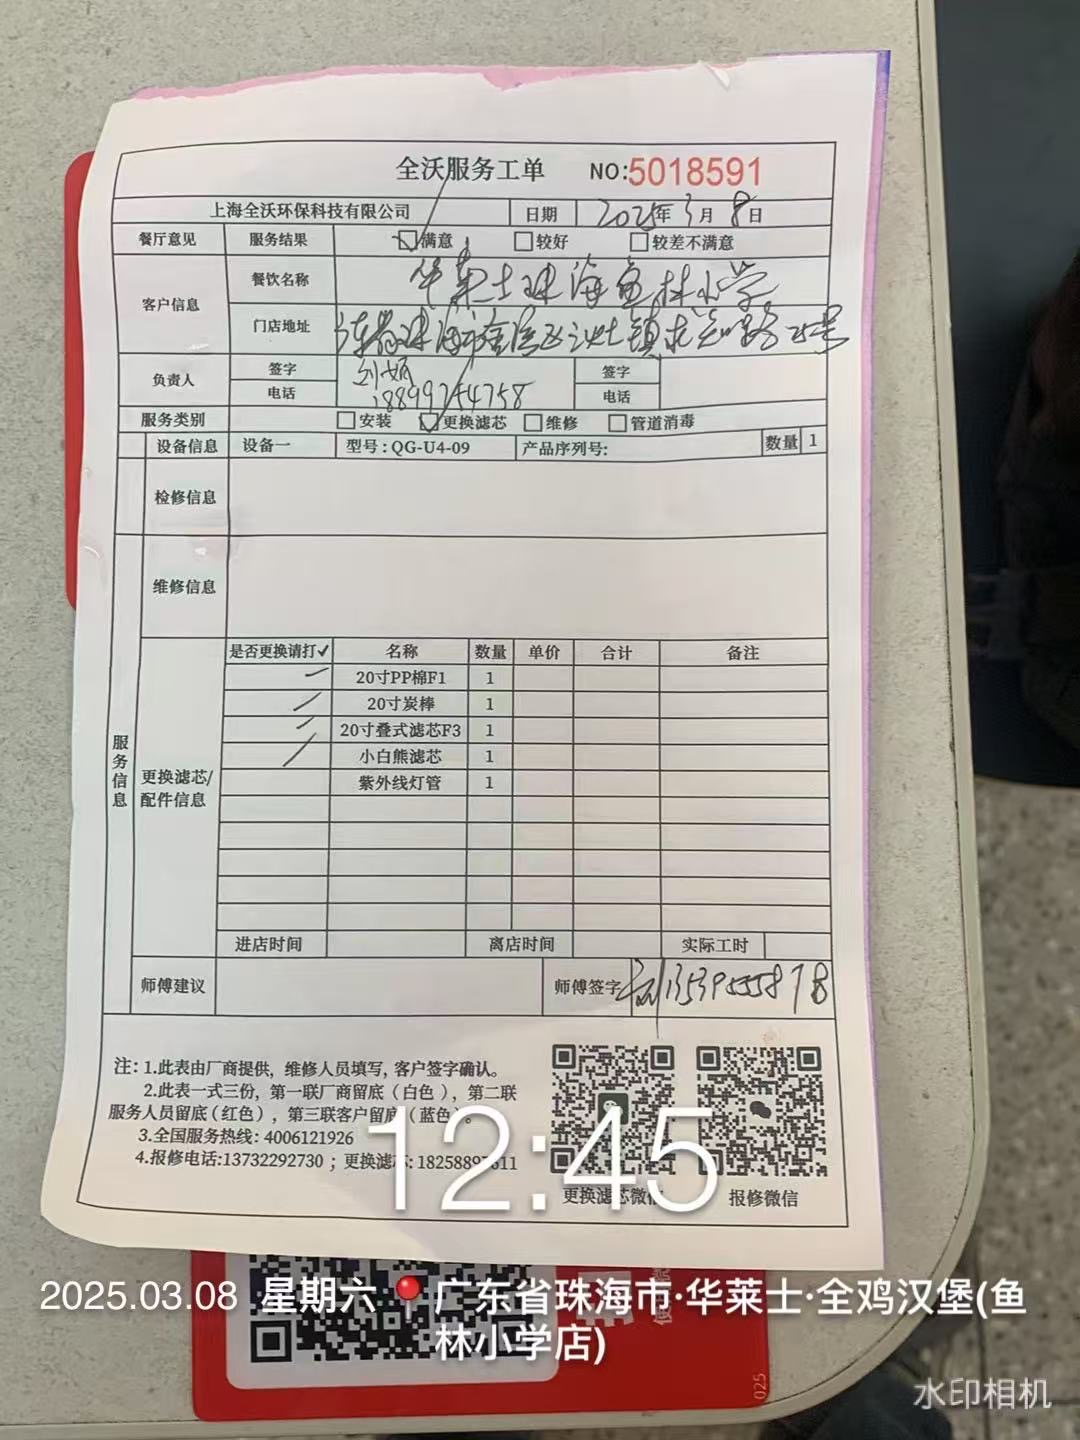 全沃服务工单 NO:5018591
上海全沃环保科技有限公司 日期 2025年3月8日
餐厅意见 服务结果 满意 较好 较差不满意
客户信息 餐饮名称 华莱士珠海鱼林小学
门店地址 珠海市金湾区三灶镇
负责人 签字 签字
电话 18899754758 电话
服务类别 安装 更换滤芯 维修 管道消毒
设备信息 设备一 型号:QG-U4-09 产品序列号: 数量 1
检修信息
维修信息
服务信息
更换滤芯/配件信息
是否更换请打✓ 名称 数量 单价 合计 备注
20寸PP棉F1 1
20寸炭棒 1
20寸叠式滤芯F3 1
小白熊滤芯 1
紫外线灯管 1
进店时间 离店时间 实际工时
师傅建议 师傅签字
注:1.此表由厂商提供，维修人员填写，客户签字确认。
2.此表一式三份，第一联厂商留底（白色），第二联
服务人员留底(红色)，第三联客户留底（蓝色）。
3.全国服务热线:4006121926
4.报修电话:13732292730；更换滤芯:
更换滤芯微信 报修微信
12:45
2025.03.08 星期六 广东省珠海市·华莱士·全鸡汉堡(鱼
林小学店)
025
水印相机